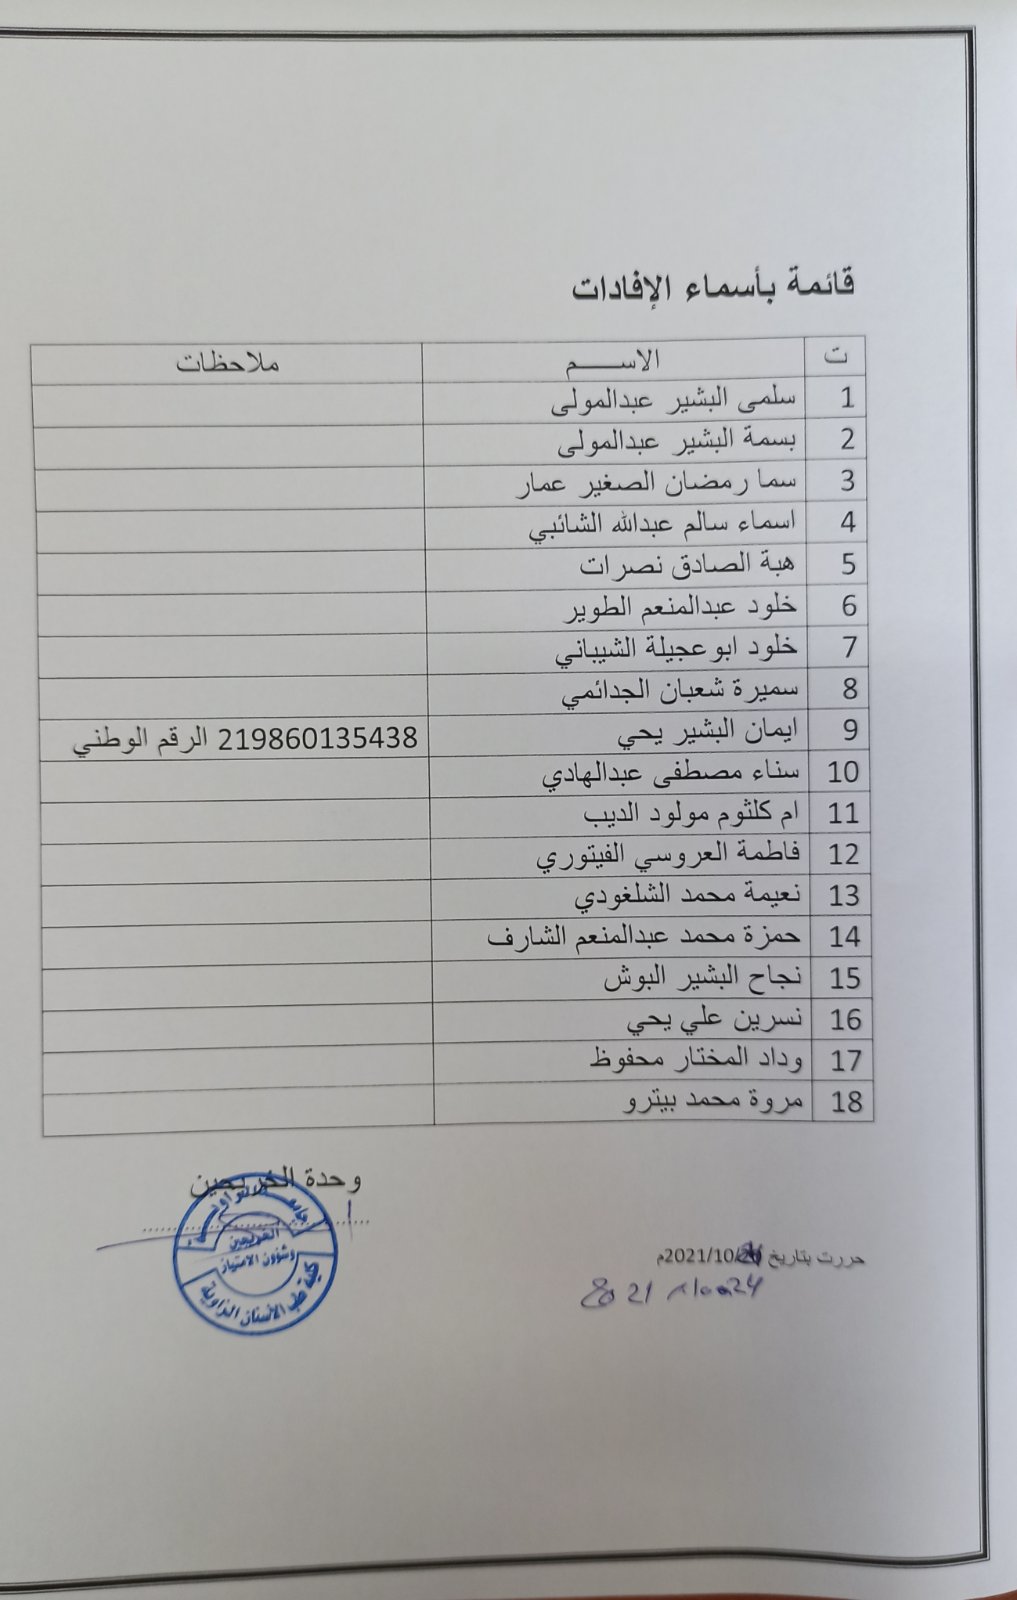 قائمة بأسماء الإفادات
ت الاســــم ملاحظات
1 سلمى البشير عبدالمولى
2 بسمة البشير عبدالمولى
3 سما رمضان الصغير عمار
4 اسماء سالم عبدالله الشائبي
5 هبة الصادق نصرات
6 خلود عبدالمنعم الطوير
7 خلود ابوعجيلة الشيباني
8 سميرة شعبان الجدائمي
9 ايمان البشير يحي 219860135438 الرقم الوطني
10 سناء مصطفى عبدالهادي
11 ام كلثوم مولود الديب
12 فاطمة العروسي الفيتوري
13 نعيمة محمد الشلغودي
14 حمزة محمد عبدالمنعم الشارف
15 نجاح البشير البوش
16 نسرين علي يحي
17 وداد المختار محفوظ
18 مروة محمد بيترو
وحدة الخريجين
الخريجين
وشؤون الامتياز
كلية طب الاسنان الزاوية
حررت بتاريخ 2021/10/م